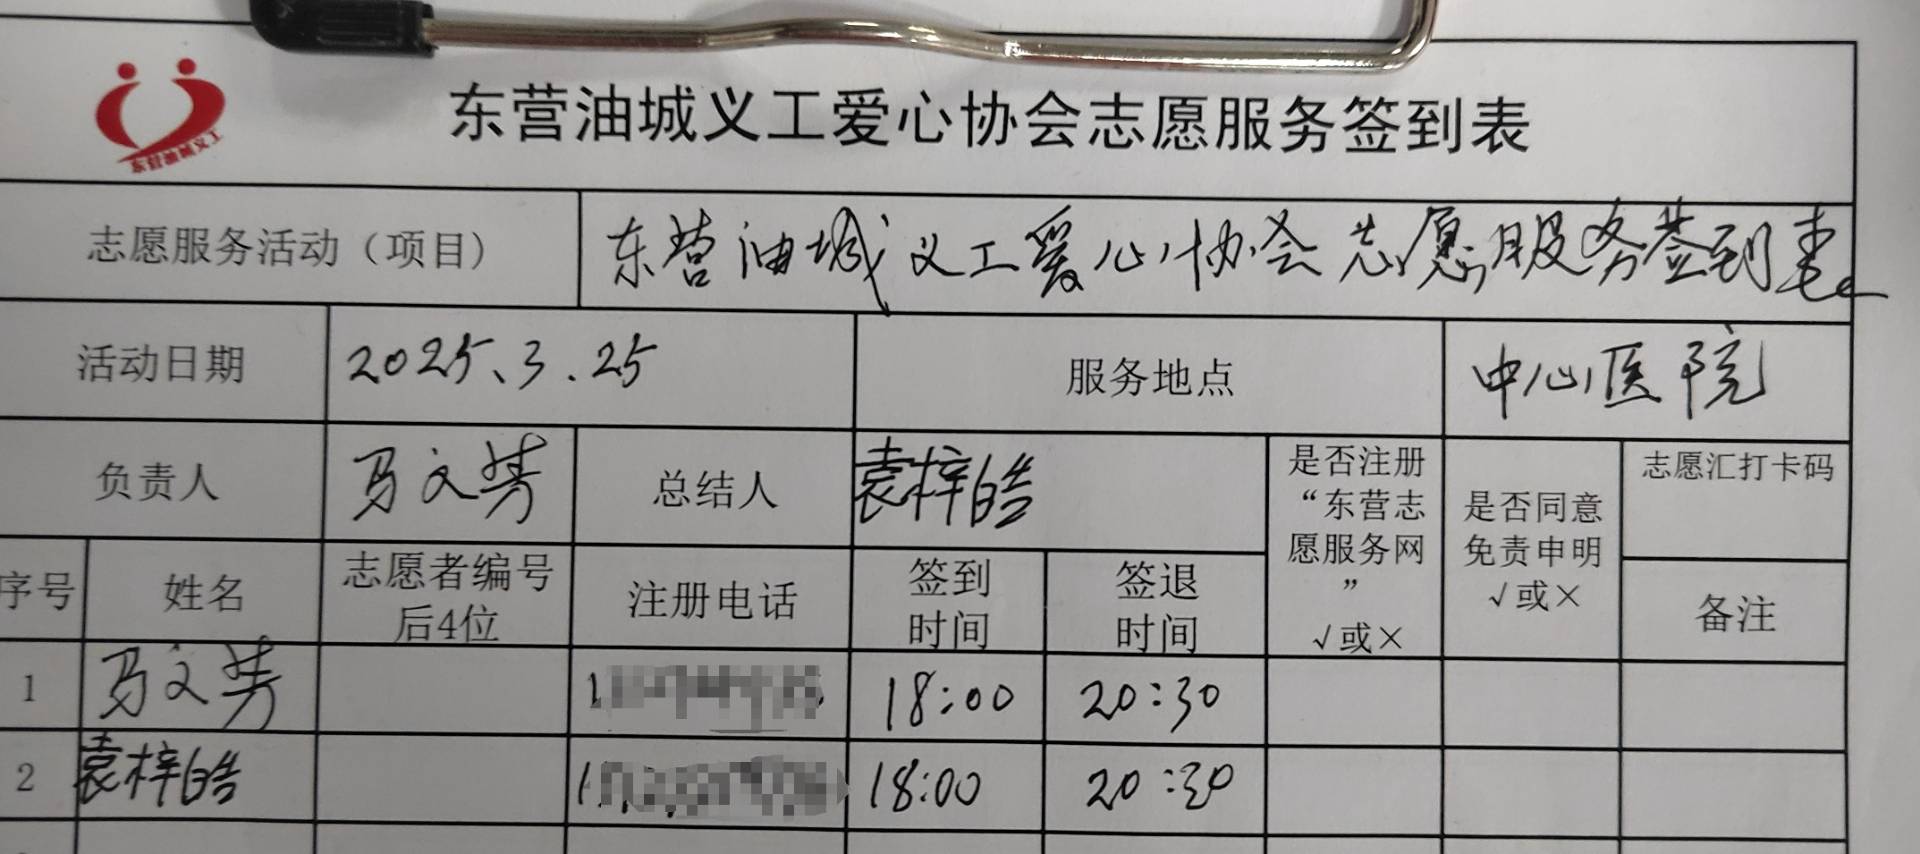 东营油城义工爱心协会志愿服务签到表
东营油城义工
志愿服务活动（项目） 东营油城义工爱心协会志愿服务签到表
活动日期 2025.3.25 服务地点 中心医院
负责人 马文芳 总结人 袁梓皓
是否注册
“东营志
愿服务网
”
√或×
是否同意
免责申明
√或×
志愿汇打卡码
备注
序号 姓名
志愿者编号
后4位
注册电话
签到
时间
签退
时间
1 马文芳 18:00 20:30
2 袁梓皓 18:00 20:30